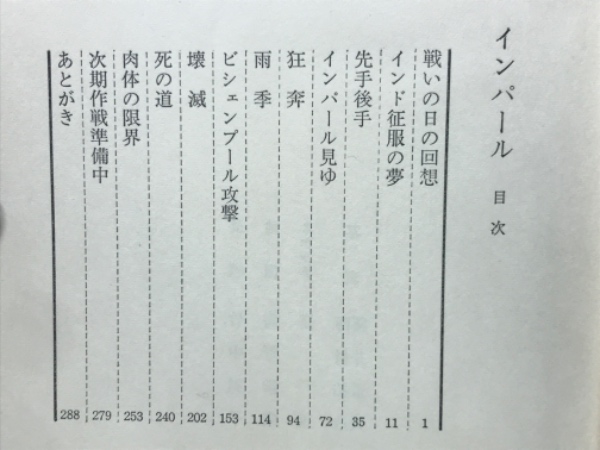 インパール 目次
戦いの日の回想 1
インド征服の夢 11
先手後手 35
インパール見ゆ 72
狂奔 94
雨季 114
ビシェンプール攻撃 153
壊滅 202
死の道 240
肉体の限界 253
次期作戦準備中 279
あとがき 288